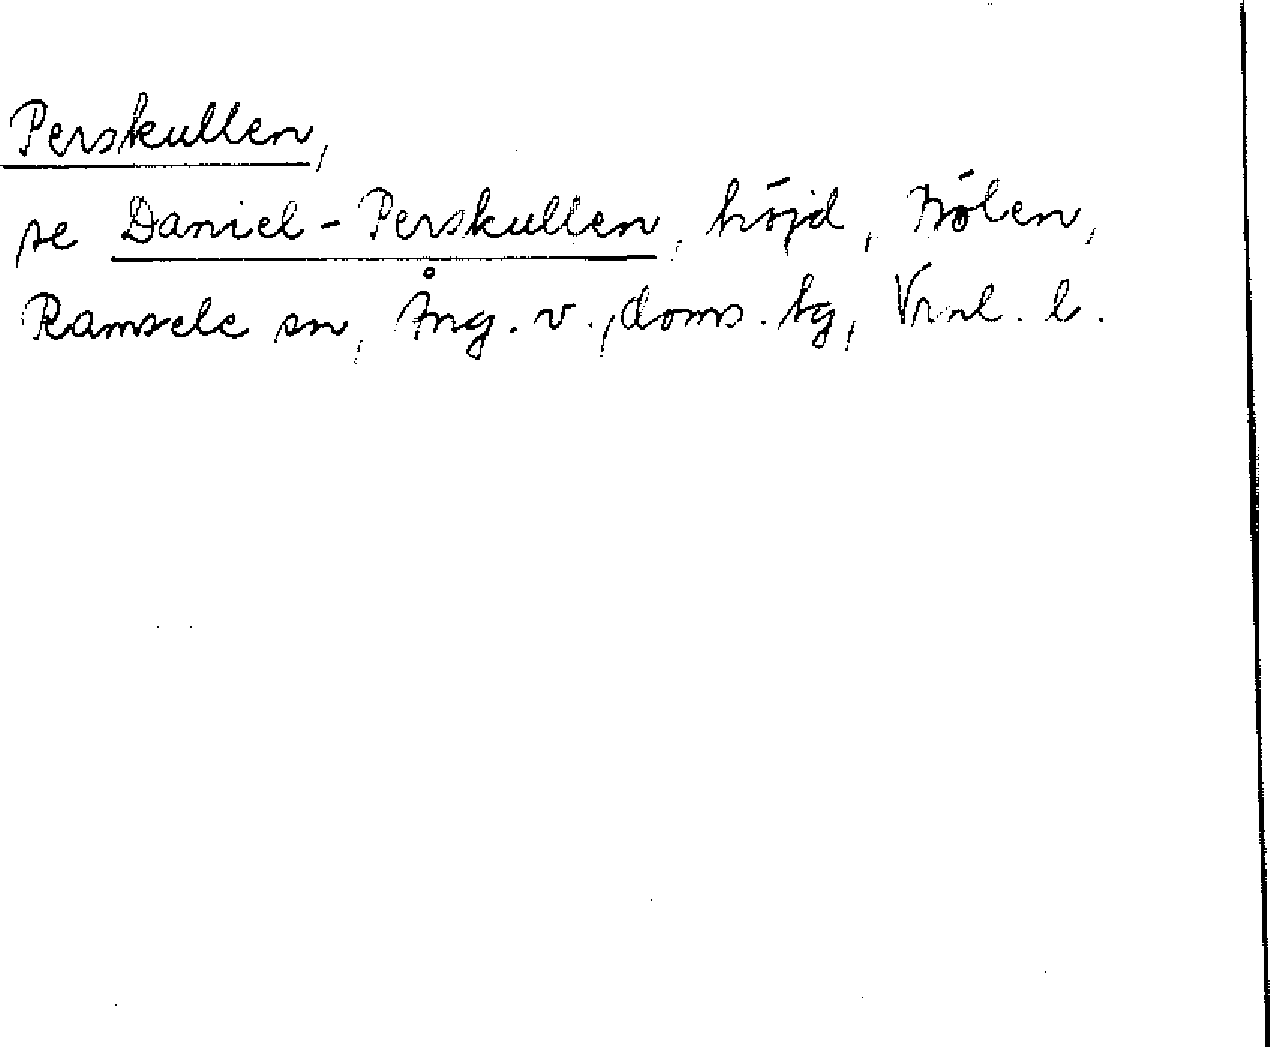 Perskullen,
se Daniel-Perskullen, höjd, Nölen,
Ramsele sn, Ång. v., doms. tg, Vrnl. l.